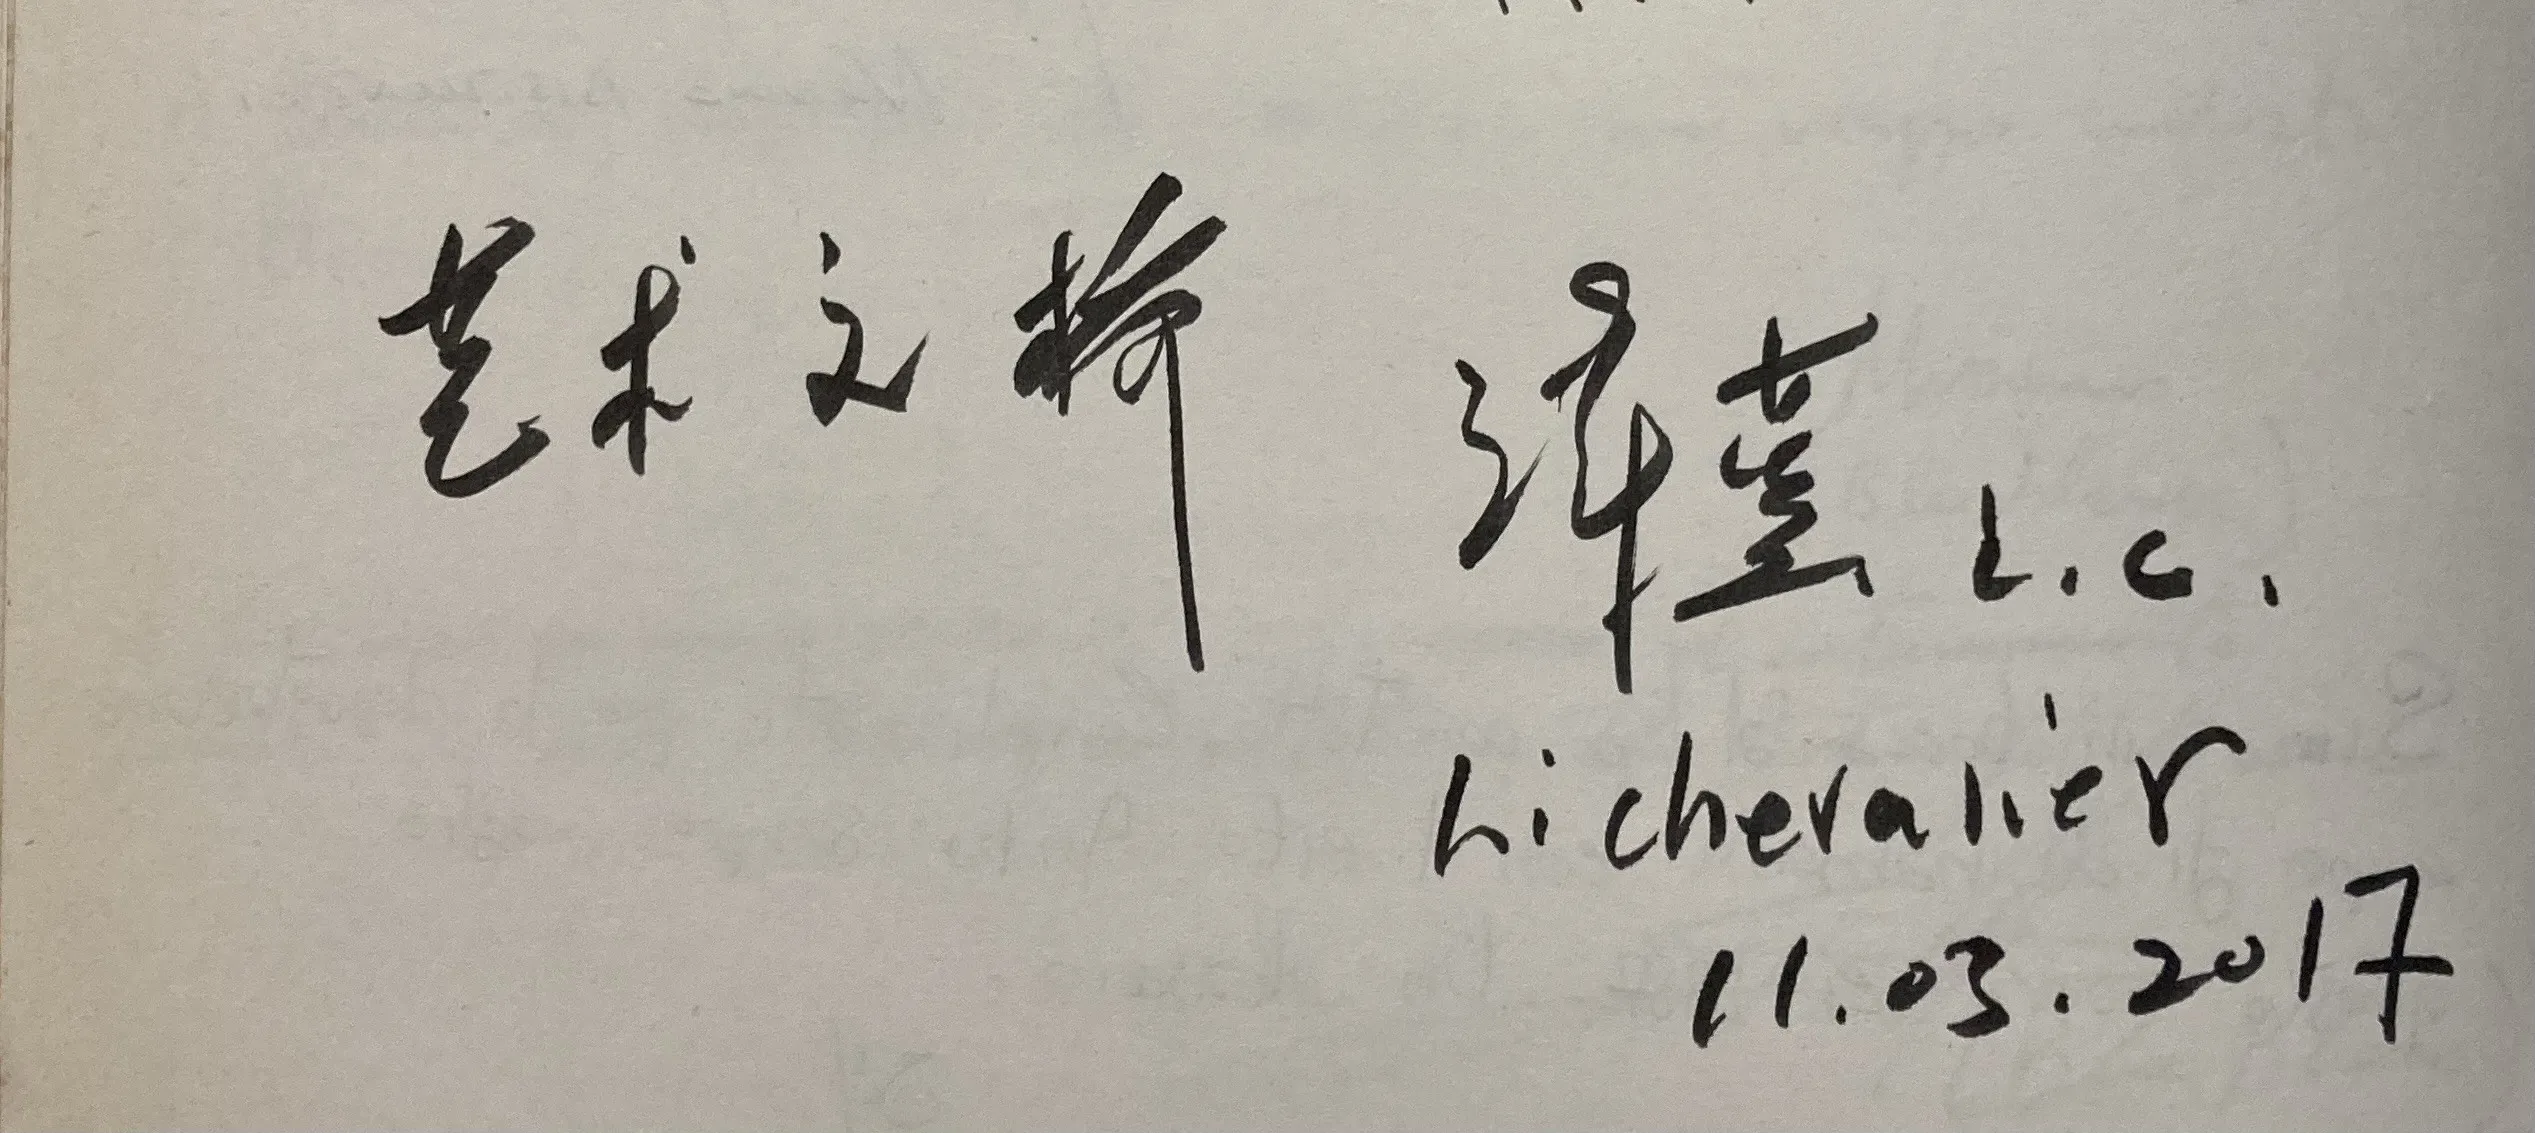 艺术之桥 译蔓 L.C.
Li chevalier
11.03.2017